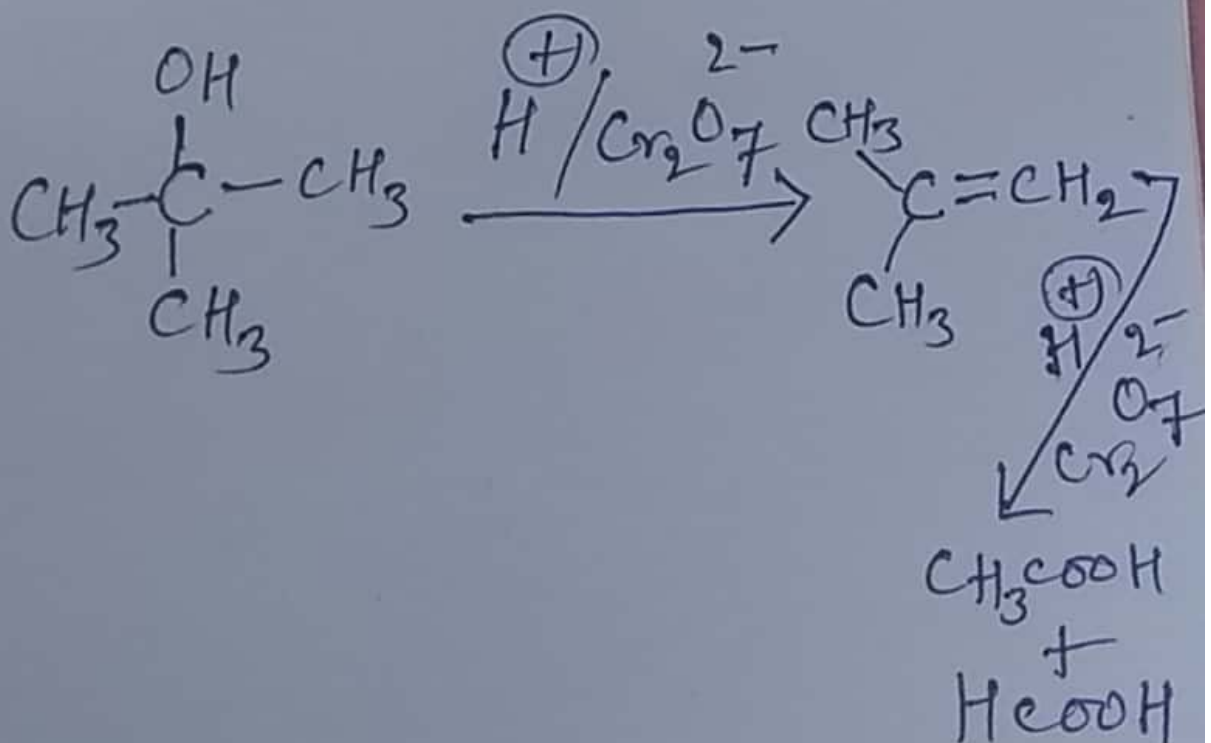 OH
CH3-C-CH3
CH3
H⊕/Cr2O7 2-
CH3
C=CH2
CH3
H⊕
Cr2O7 2-
CH3COOH
+
HCOOH